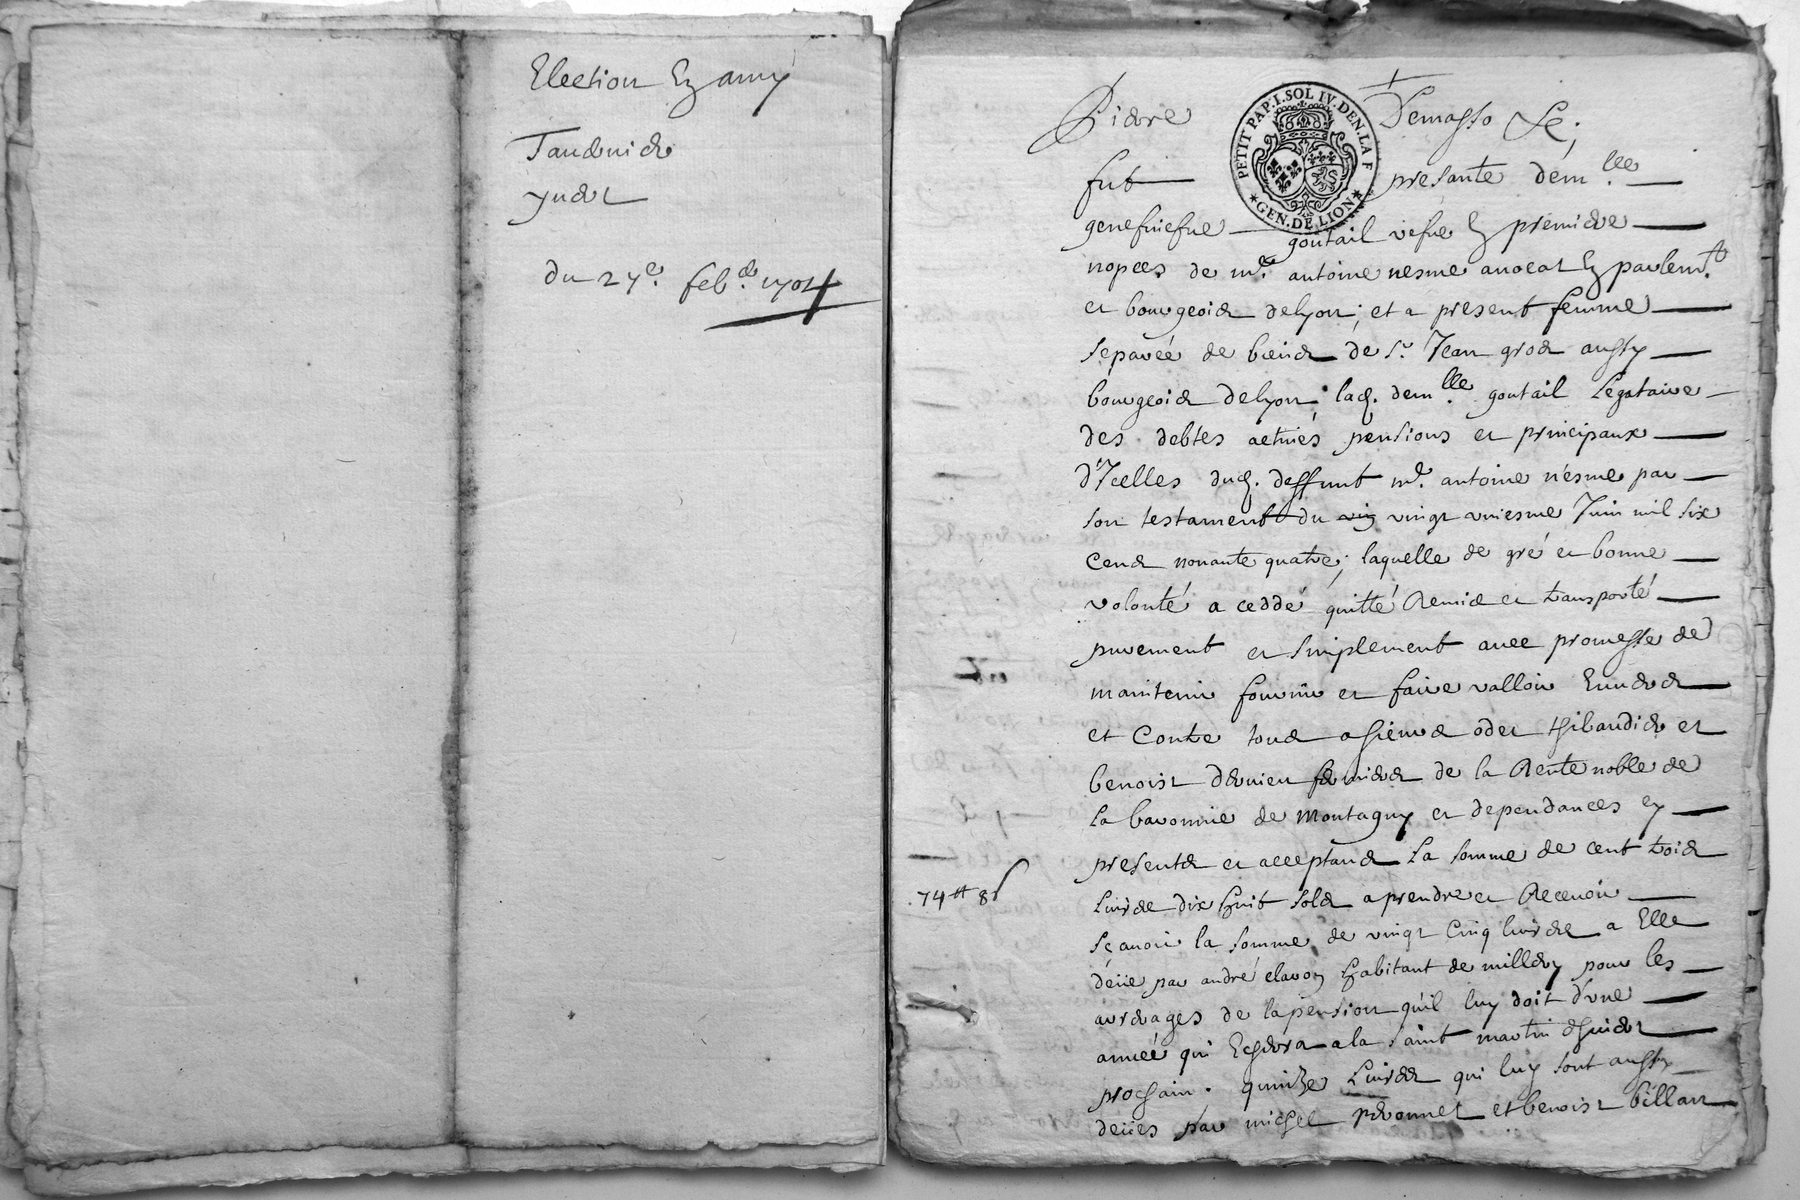 Election En amy
Tauernier
yuer
du 27e. feb.er 1704
Pierre Demasso Sc;
PETIT PAP. I. SOL IV. DEN. LA F
GEN. DE LION
fut presante dem.lle
genefuiefue goutail vefue en premiere
nopces de m.e antoine nesme auocat en parlem.t
et bourgeois delyon; et a present femme
separéé de biens de s.r Jean gros aussy
bourgeois delyon; lad. dem.lle goutail Legataire
des debtes actiues pensions et principaux
d'Icelles dud. deffunt m.e antoine nesme par
son testament du vin vingt vniesme Juin mil six
cens nonante quatre; laquelle de gré et bonne
volonté a ceddé quitté Remis et transporté
purement et simplement auec promesse de
maintenir fournir et faire valloir Enuers
et Contre tous a sieurs odet thibaudier et
benoist dernieu fermiers de la Rente noble de
la baronnie de montagny et dependances ey
presents et acceptans La somme de cent trois
74tt 8s
Liures dix huit sols a prendre et Receuoir
sçauoir la somme de vingt Cinq liures a Elle
deüe par andré clauon habitant de millery pour les
arrerages de lapension qu'il luy doit d'vne
annéé qui Echerra ala saint martin dhiuer
prochain. quinze Liures qui luy sont aussy
deües par michel peronnet et benoist billan